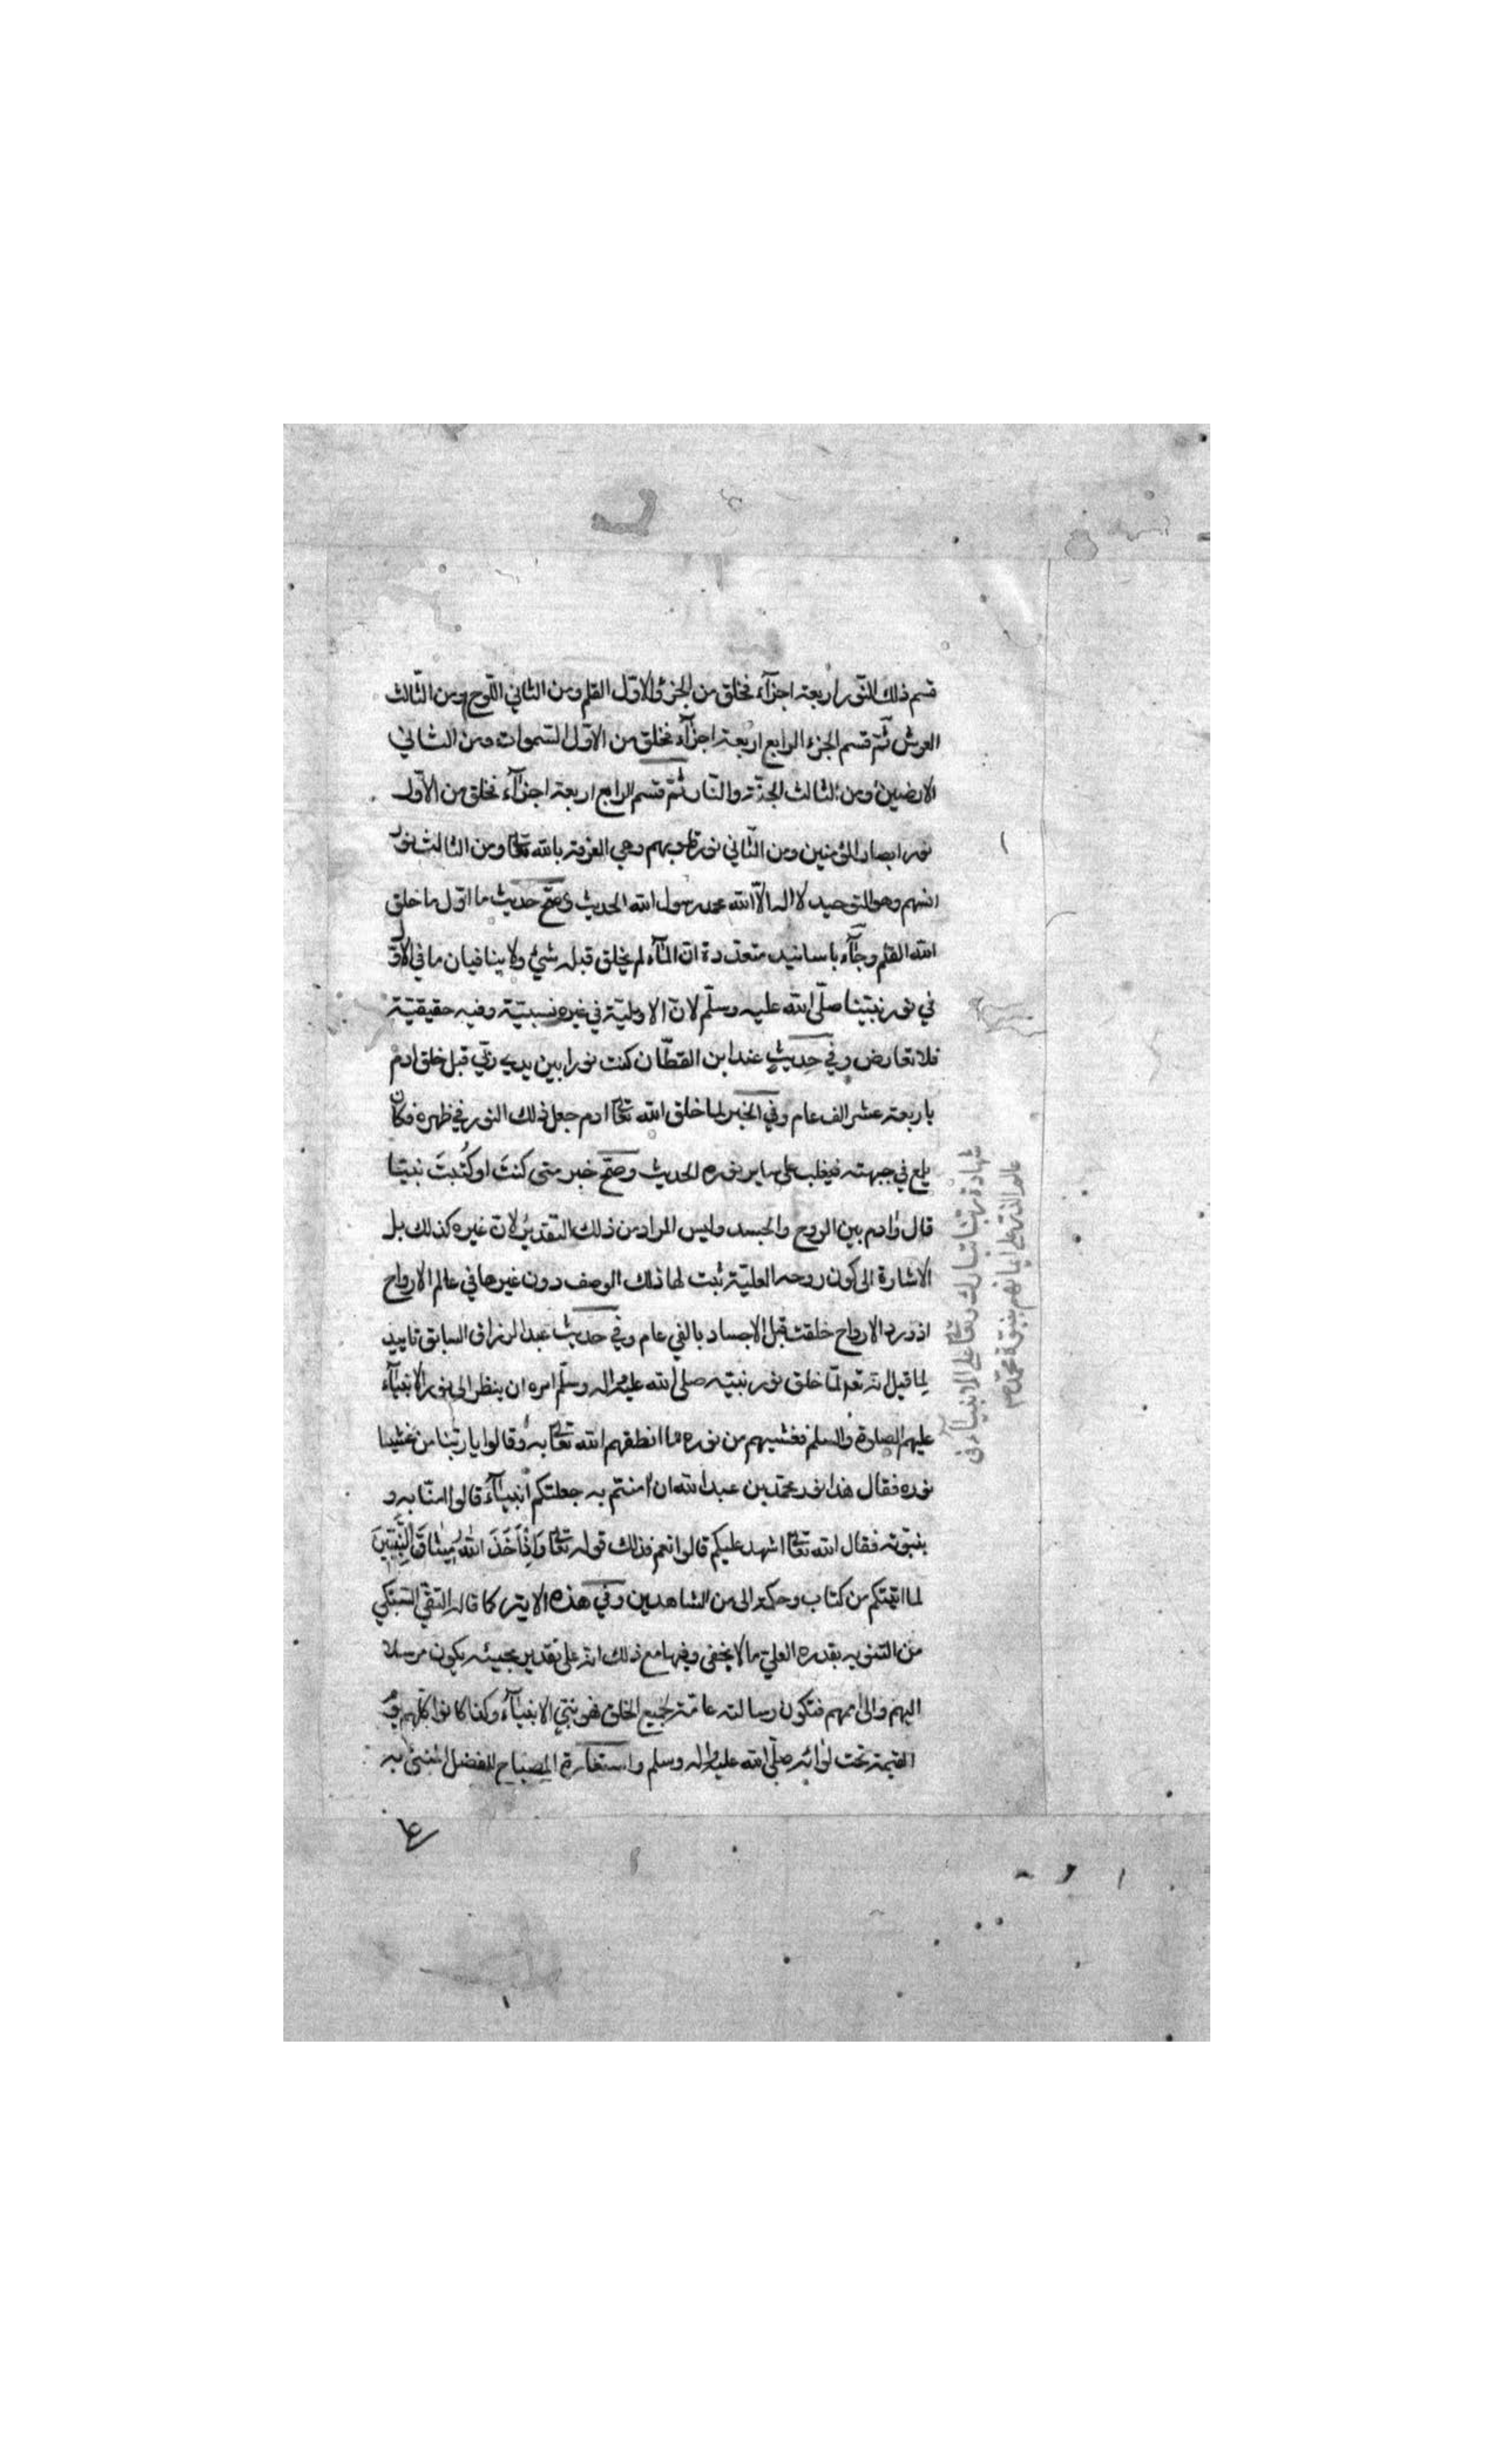 قسم ذلك النّور اربعة اجزآء فخلق من الجزء الاوّل القلم ومن الثاني اللّوح ومن الثّالث
العرش ثمّ قسم الجزء الرابع اربعة اجزآء فخلق من الاوّل السّموات ومن الثّاني
الارضين ومن الثالث الجنّة والنّار ثمّ قسم الرابع اربعة اجزآء فخلق من الاوّل
نور ابصار المؤمنين ومن الثّاني نور قلوبهم وهي المعرفة بالله تعالى ومن الثالث نور
انسهم وهو التوحيد لا اله الّا الله محمد رسول الله الحديث وصحّ حديث ما اوّل ما خلق
الله القلم وجآء باسانيد متعددة انّ المآء لم يخلق قبله شيء ولا ينافيان ما في الاوّل
في نور نبيّنا صلّى الله عليه وسلّم لانّ الاوليّة في غيره نسبيّة وفيه حقيقيّة
فلا تعارض وفي حديثٍ عند ابن القطّان كنت نورا بين يدي ربّي قبل خلق ادم
باربعة عشر الف عام وفي الخبر لما خلق الله تعالى ادم جعل ذلك النور في ظهره فكان
يلمع في جبهته فيغلب على ساير نوره الحديث وصحّ خبر متى كنتَ او كُتبتَ نبيّا
قال وادم بين الروح والجسد وليس المراد من ذلك التقدير لانّ غيره كذلك بل
الاشارة الى كون روحه العليّة ثبت لها ذلك الوصف دون غيرها في عالم الارواح
اذ ورد الارواح خلقت قبل الاجساد بالفي عام وفي حديث عبد الرزاق السابق تاييد
لما قيل انه تعالى لمّا خلق نور نبيّه صلى الله عليه واله وسلّم امره ان ينظر الى نور الانبيآء
عليهم الصلوة والسلم فغشيهم من نوره ما انطقهم الله تعالى به وقالوا يا ربّنا من غشينا
نوره فقال هذا نور محمّد بن عبد الله ان امنتم به جعلتكم انبيآءَ قالوا امنّا به و
بنبوّته فقال الله تعالى اشهد عليكم قالوا نعم فذلك قوله تعالى وَاِذْ اَخَذَ اللهُ مِيثاقَ النَّبِيّينَ
لما اتيتكم من كتاب وحكمة الى من الشاهدين وفي هذه الاية كما قاله التقيّ السّبكي
من التنويه بقدره العليّ ما لا يخفى وفيها مع ذلك انه على تقدير مجيئه يكون مرسلا
اليهم والى اممهم فتكون رسالته عامّة لجميع الخلق فهو نبيّ الانبيآء وكذا كانوا كلّهم يوم
القيمة تحت لوائه صلّى الله عليه واله وسلم واستعارة المصباح للفضل
شهادة ربّنا تبارك وتعالى على الانبيآء في
عالم الذر على ايمانهم بنبوّة محمّد